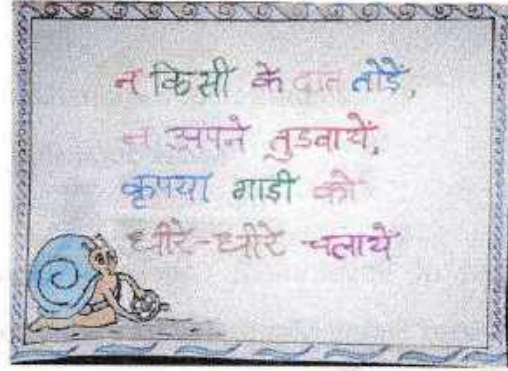 न किसी के दांत तोड़ें,
न अपने तुडवायें,
कृपया गाडी को
धीरे-धीरे चलाये